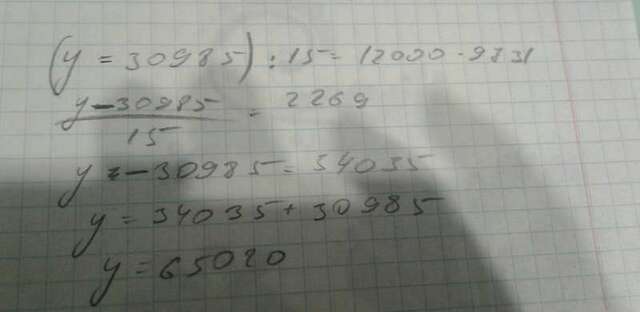 (y = 30985) : 15 = 12000 - 9731
y - 30985 / 15 = 2269
y - 30985 = 34035
y = 34035 + 30985
y = 65020